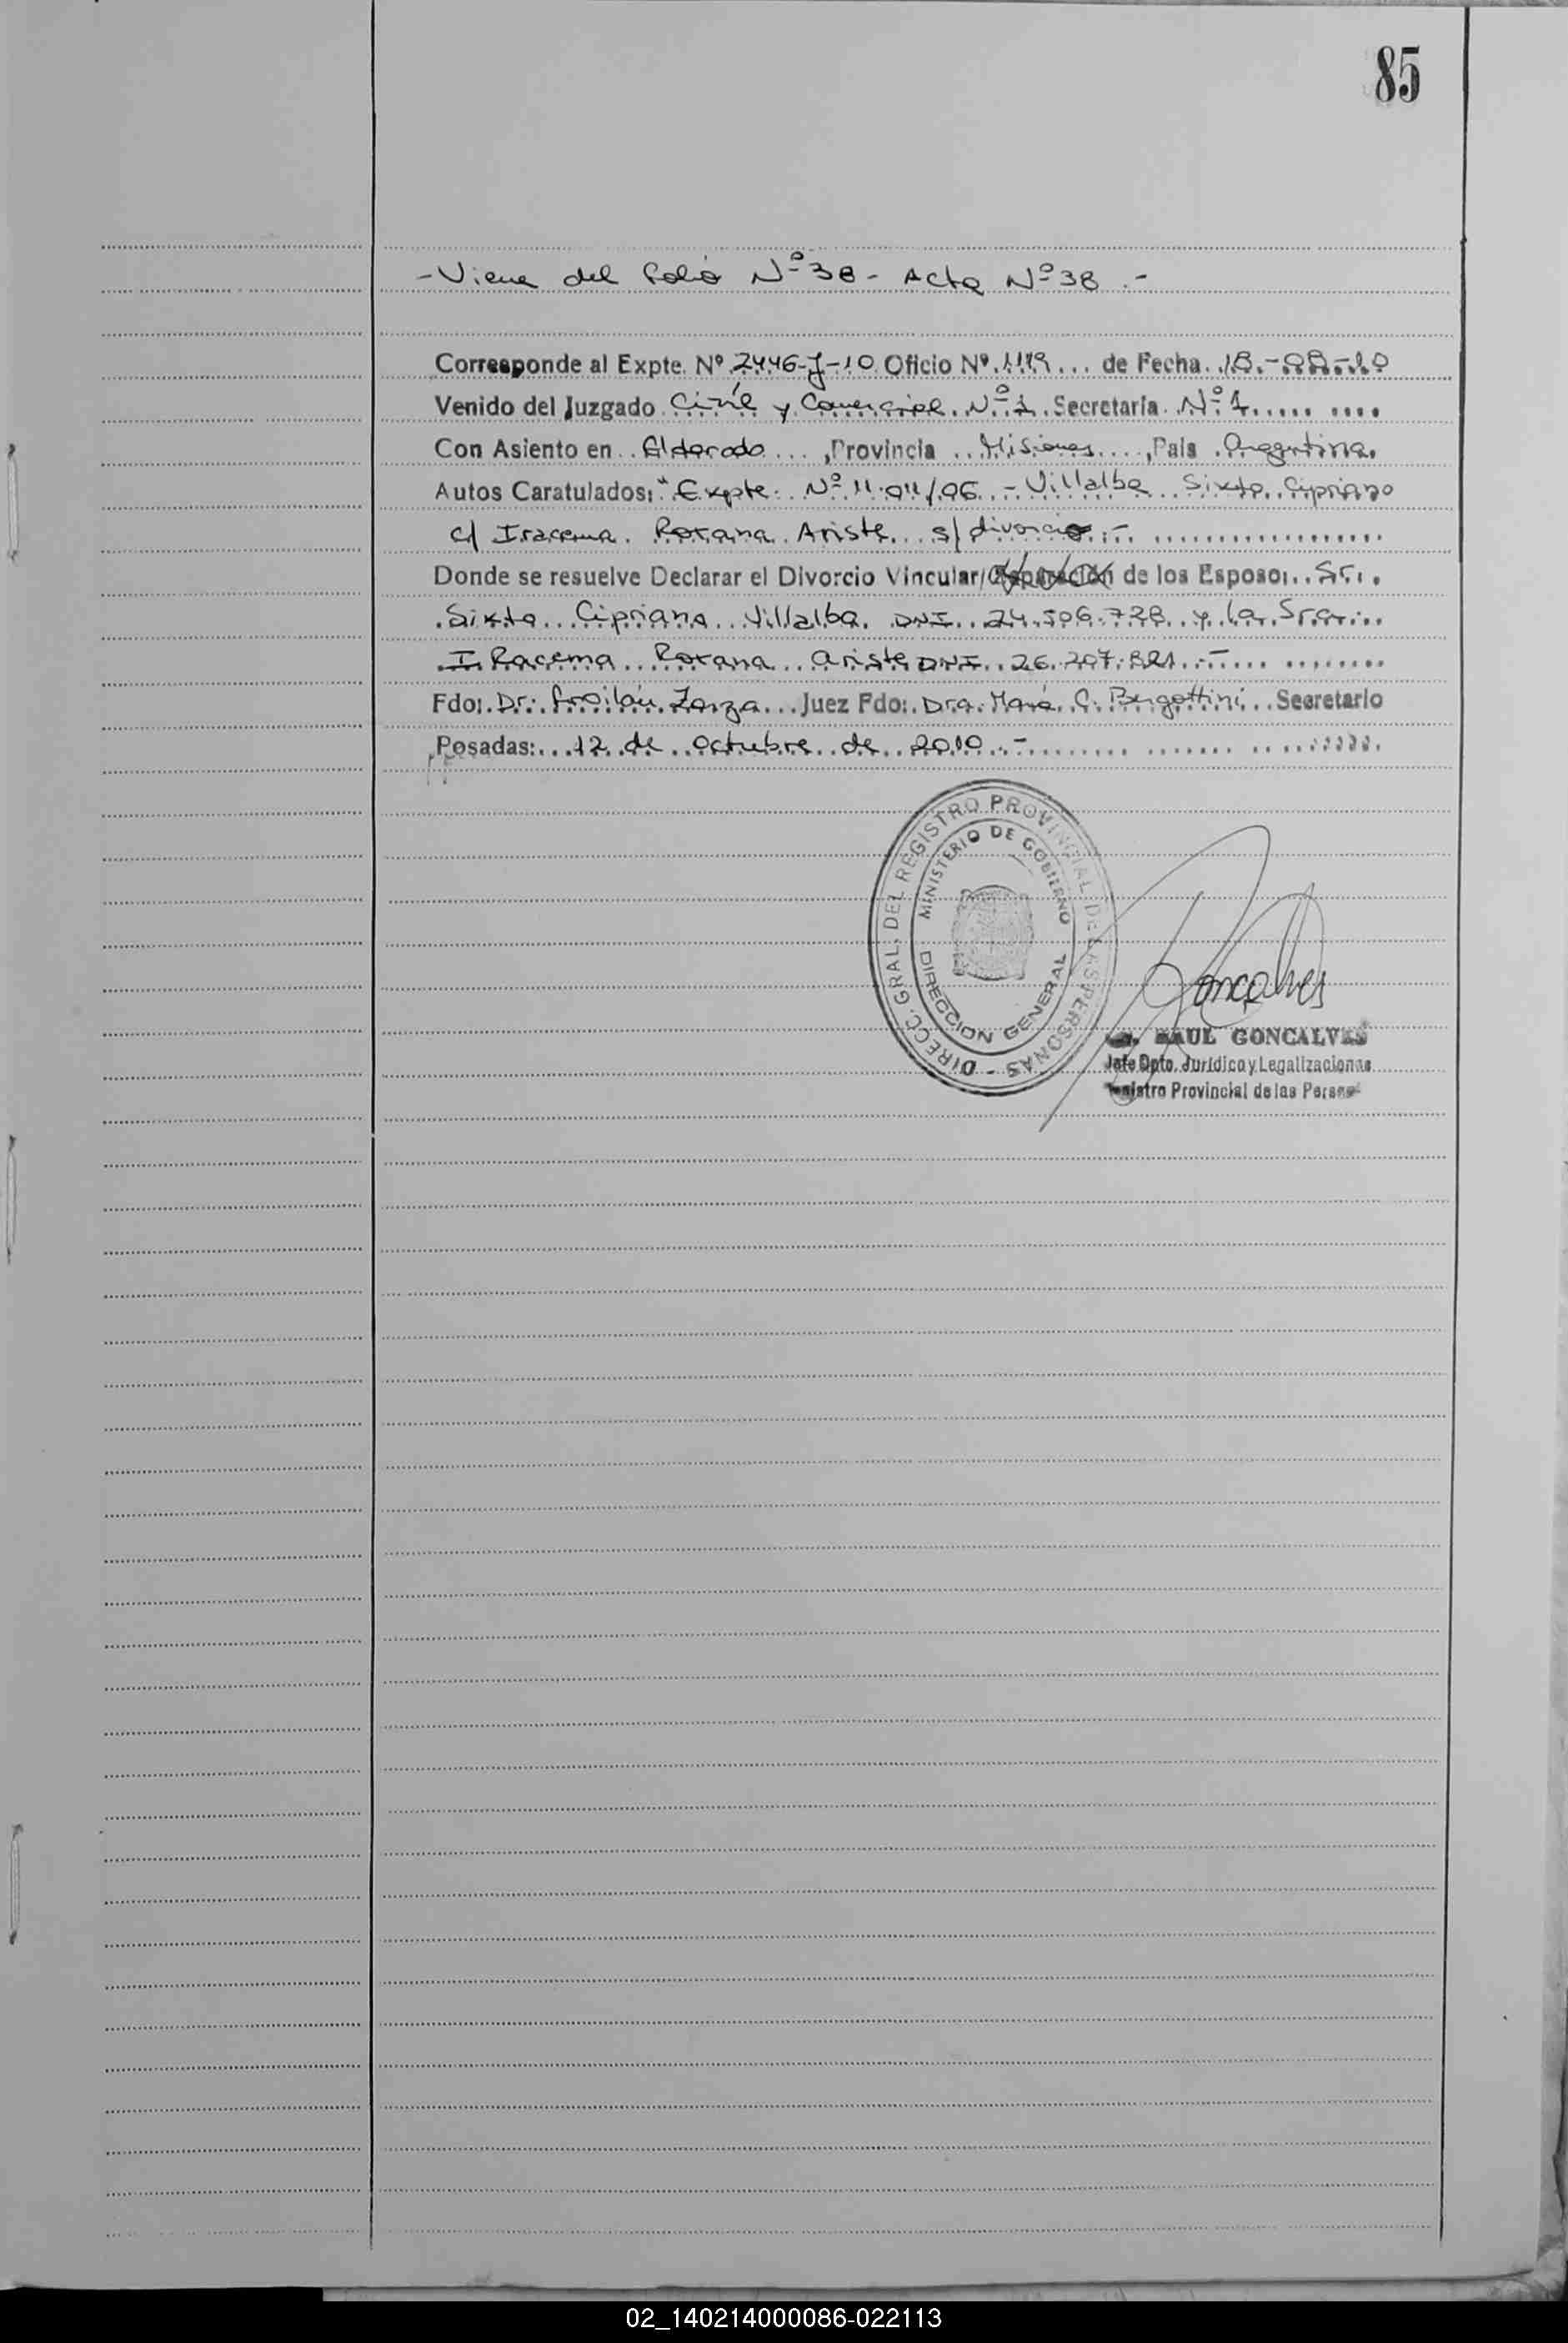 85
- Viene del folio Nº 38 - Acta Nº 38 . -
Corresponde al Expte. Nº 2446-J-10 Oficio Nº 1119 ... de Fecha. 18.-08-10
Venido del Juzgado Civil y Comercial. Nº 1. Secretaría. Nº 1.........
Con Asiento en .. Eldorado ... ,Provincia .. Misiones ...., País . Argentina.
Autos Caratulados: " Expte. Nº 11.011/06. - Villalba Sixto Cipriano
c/ Iracema. Roxana. Ariste... s/ divorcio.- ..................
Donde se resuelve Declarar el Divorcio Vincular/Separación de los Esposo:.. Sr. .
.Sixto... Cipriano.. Villalba. DNI.. 24.506.728. y. la. Sra...
.I Racema.. Roxana... Ariste DNI.. 26.207.821...-.... ........
Fdo: Dr. Froilán. Zarza... Juez Fdo: Dra. María. C. Bergottini.. Secretario
Posadas:...12. de. octubre. de.. 2010..-........
DIRECC. GRAL. DEL REGISTRO PROVINCIAL DE LAS PERSONAS -
MINISTERIO DE GOBIERNO
DIRECCION GENERAL
Goncalves
RAUL GONCALVES
Jefe Dpto. Jurídico y Legalizaciones
Registro Provincial de las Personas
02_140214000086-022113